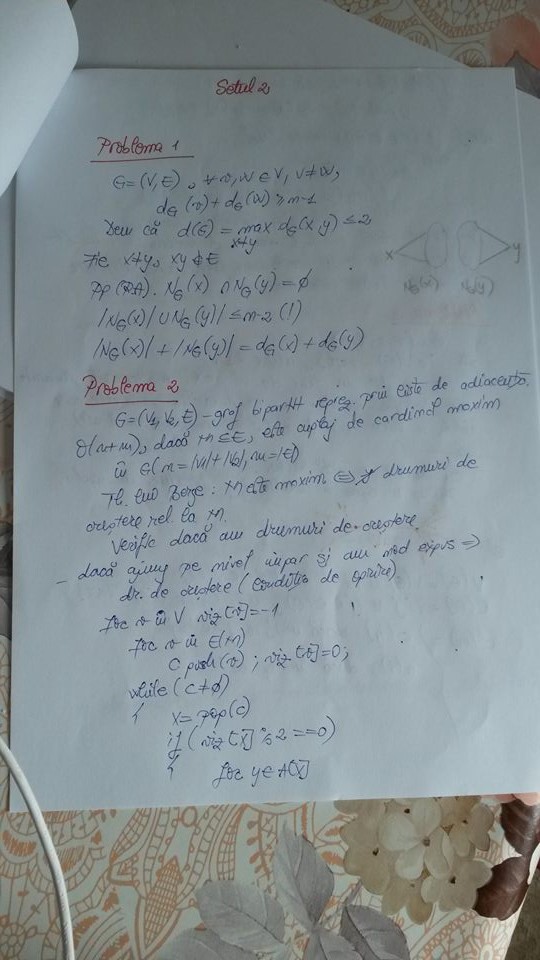 Setul 2
Problema 1
G=(V,E), ∀ v,w ∈ V, v≠w,
d_G(v)+d_G(w) ≥ n-1
Dem că d(G) = max d_G(x,y) ≤ 2
x≠y
Fie x≠y, xy ∉ E
x y
N_G(x) N_G(y)
PP (RA). N_G(x) ∩ N_G(y) = ∅
|N_G(x) ∪ N_G(y)| ≤ n-2 (!)
|N_G(x)| + |N_G(y)| = d_G(x) + d_G(y)
Problema 2
G=(V1,V2,E) - graf bipartit reprez. prin liste de adiacență.
O(n+m), dacă M ⊆ E, este cuplaj de cardinal maxim
în G (n=|V1|+|V2|, m=|E|)
Th. lui Berge: M este maxim ⇔ ∄ drumuri de
creștere rel. la M.
Verific dacă am drumuri de creștere
- dacă ajung pe nivel impar și am nod expus ⇒
dr. de creștere (condiția de oprire).
for v în V viz[v]=-1
for v în E(M)
C push(v); viz[v]=0;
while (C≠∅)
{ x=pop(C)
if (viz[x]%2==0)
{ for y∈A[x]